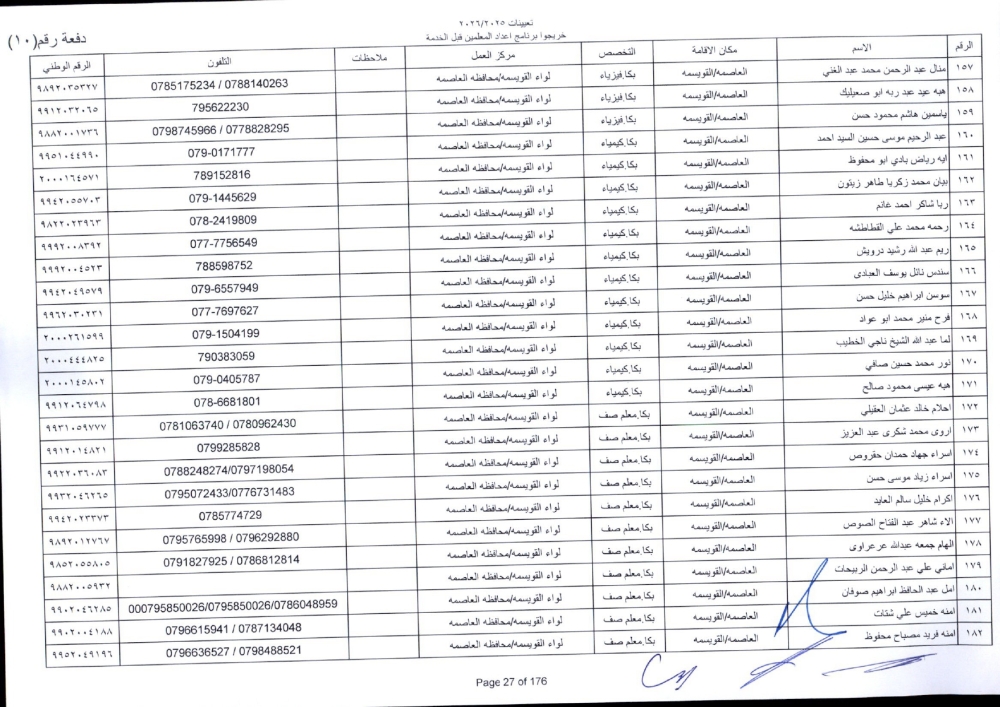 تعيينات ٢٠٢٦/٢٠٢٥
خريجوا برنامج اعداد المعلمين قبل الخدمة
دفعة رقم(١٠)
الرقم الاسم مكان الاقامة التخصص مركز العمل ملاحظات التلفون الرقم الوطني
١٥٧ منال عبد الرحمن محمد عبد الغني العاصمه/القويسمه بكا.فيزياء لواء القويسمه/محافظه العاصمه 0785175234 / 0788140263 ٩٨٩٢٠٣٥٣٢٧
١٥٨ هبه عيد عبد ربه ابو صعيليك العاصمه/القويسمه بكا.فيزياء لواء القويسمه/محافظه العاصمه 795622230 ٩٩١٢٠٣٢٠٦٥
١٥٩ ياسمين هاشم محمود حسن العاصمه/القويسمه بكا.فيزياء لواء القويسمه/محافظه العاصمه 0798745966 / 0778828295 ٩٨٨٢٠٠١٧٣٦
١٦٠ عبد الرحيم موسى حسين السيد احمد العاصمه/القويسمه بكا.كيمياء لواء القويسمه/محافظه العاصمه 079-0171777 ٩٩٥١٠٤٤٩٩٠
١٦١ ايه رياض بادي ابو محفوظ العاصمه/القويسمه بكا.كيمياء لواء القويسمه/محافظه العاصمه 789152816 ٢٠٠٠١٦٤٥٧١
١٦٢ بيان محمد زكريا طاهر زيتون العاصمه/القويسمه بكا.كيمياء لواء القويسمه/محافظه العاصمه 079-1445629 ٩٩٤٢٠٥٥٧٠٣
١٦٣ ربا شاكر احمد غانم العاصمه/القويسمه بكا.كيمياء لواء القويسمه/محافظه العاصمه 078-2419809 ٩٨٢٢٠٢٣٩٦٣
١٦٤ رحمه محمد علي القطاطشه العاصمه/القويسمه بكا.كيمياء لواء القويسمه/محافظه العاصمه 077-7756549 ٩٩٩٢٠٠٨٣٩٢
١٦٥ ريم عبد الله رشيد درويش العاصمه/القويسمه بكا.كيمياء لواء القويسمه/محافظه العاصمه 788598752 ٩٩٩٢٠٠٤٥٢٣
١٦٦ سندس نائل يوسف العبادى العاصمه/القويسمه بكا.كيمياء لواء القويسمه/محافظه العاصمه 079-6557949 ٩٩٤٢٠٤٩٥٧٩
١٦٧ سوسن ابراهيم خليل حسن العاصمه/القويسمه بكا.كيمياء لواء القويسمه/محافظه العاصمه 077-7697627 ٩٩٦٢٠٣٠٢٣١
١٦٨ فرح منير محمد ابو عواد العاصمه/القويسمه بكا.كيمياء لواء القويسمه/محافظه العاصمه 079-1504199 ٢٠٠٠٢٦١٥٩٩
١٦٩ لما عبد الله الشيخ ناجي الخطيب العاصمه/القويسمه بكا.كيمياء لواء القويسمه/محافظه العاصمه 790383059 ٢٠٠٠٤٤٤٨٢٥
١٧٠ نور محمد حسين صافي العاصمه/القويسمه بكا.كيمياء لواء القويسمه/محافظه العاصمه 079-0405787 ٢٠٠٠١٤٥٨٠٢
١٧١ هبه عيسى محمود صالح العاصمه/القويسمه بكا.كيمياء لواء القويسمه/محافظه العاصمه 078-6681801 ٩٩١٢٠٦٤٧٩٨
١٧٢ احلام خالد عثمان العقيلي العاصمه/القويسمه بكا.معلم صف لواء القويسمه/محافظه العاصمه 0781063740 / 0780962430 ٩٩٣١٠٥٩٧٧٧
١٧٣ اروى محمد شكرى عبد العزيز العاصمه/القويسمه بكا.معلم صف لواء القويسمه/محافظه العاصمه 0799285828 ٩٩١٢٠١٤٨٢١
١٧٤ اسراء جهاد حمدان حقروص العاصمه/القويسمه بكا.معلم صف لواء القويسمه/محافظه العاصمه 0788248274/0797198054 ٩٩٢٢٠٣٦٠٨٣
١٧٥ اسراء زياد موسى حسن العاصمه/القويسمه بكا.معلم صف لواء القويسمه/محافظه العاصمه 0795072433/0776731483 ٩٩٣٢٠٤٦٢٦٥
١٧٦ اكرام خليل سالم العايد العاصمه/القويسمه بكا.معلم صف لواء القويسمه/محافظه العاصمه 0785774729 ٩٩٤٢٠٢٣٣٧٣
١٧٧ الاء شاهر عبد الفتاح الصوص العاصمه/القويسمه بكا.معلم صف لواء القويسمه/محافظه العاصمه 0795765998 / 0796292880 ٩٨٩٢٠١٢٧٦٧
١٧٨ الهام جمعه عبدالله عرعراوى العاصمه/القويسمه بكا.معلم صف لواء القويسمه/محافظه العاصمه 0791827925 / 0786812814 ٩٨٥٢٠٥٥٨٠٥
١٧٩ اماني علي عبد الرحمن الربيحات العاصمه/القويسمه بكا.معلم صف لواء القويسمه/محافظه العاصمه ٩٨٨٢٠٠٥٩٣٢
١٨٠ امل عبد الحافظ ابراهيم صوفان العاصمه/القويسمه بكا.معلم صف لواء القويسمه/محافظه العاصمه 000795850026/0795850026/0786048959 ٩٩٠٢٠٤٦٢٨٥
١٨١ امنه خميس علي شتات العاصمه/القويسمه بكا.معلم صف لواء القويسمه/محافظه العاصمه 0796615941 / 0787134048 ٩٩٠٢٠٠٤١٨٨
١٨٢ امنه فريد مصباح محفوظ العاصمه/القويسمه بكا.معلم صف لواء القويسمه/محافظه العاصمه 0796636527 / 0798488521 ٩٩٥٢٠٤٩١٩٦
Page 27 of 176